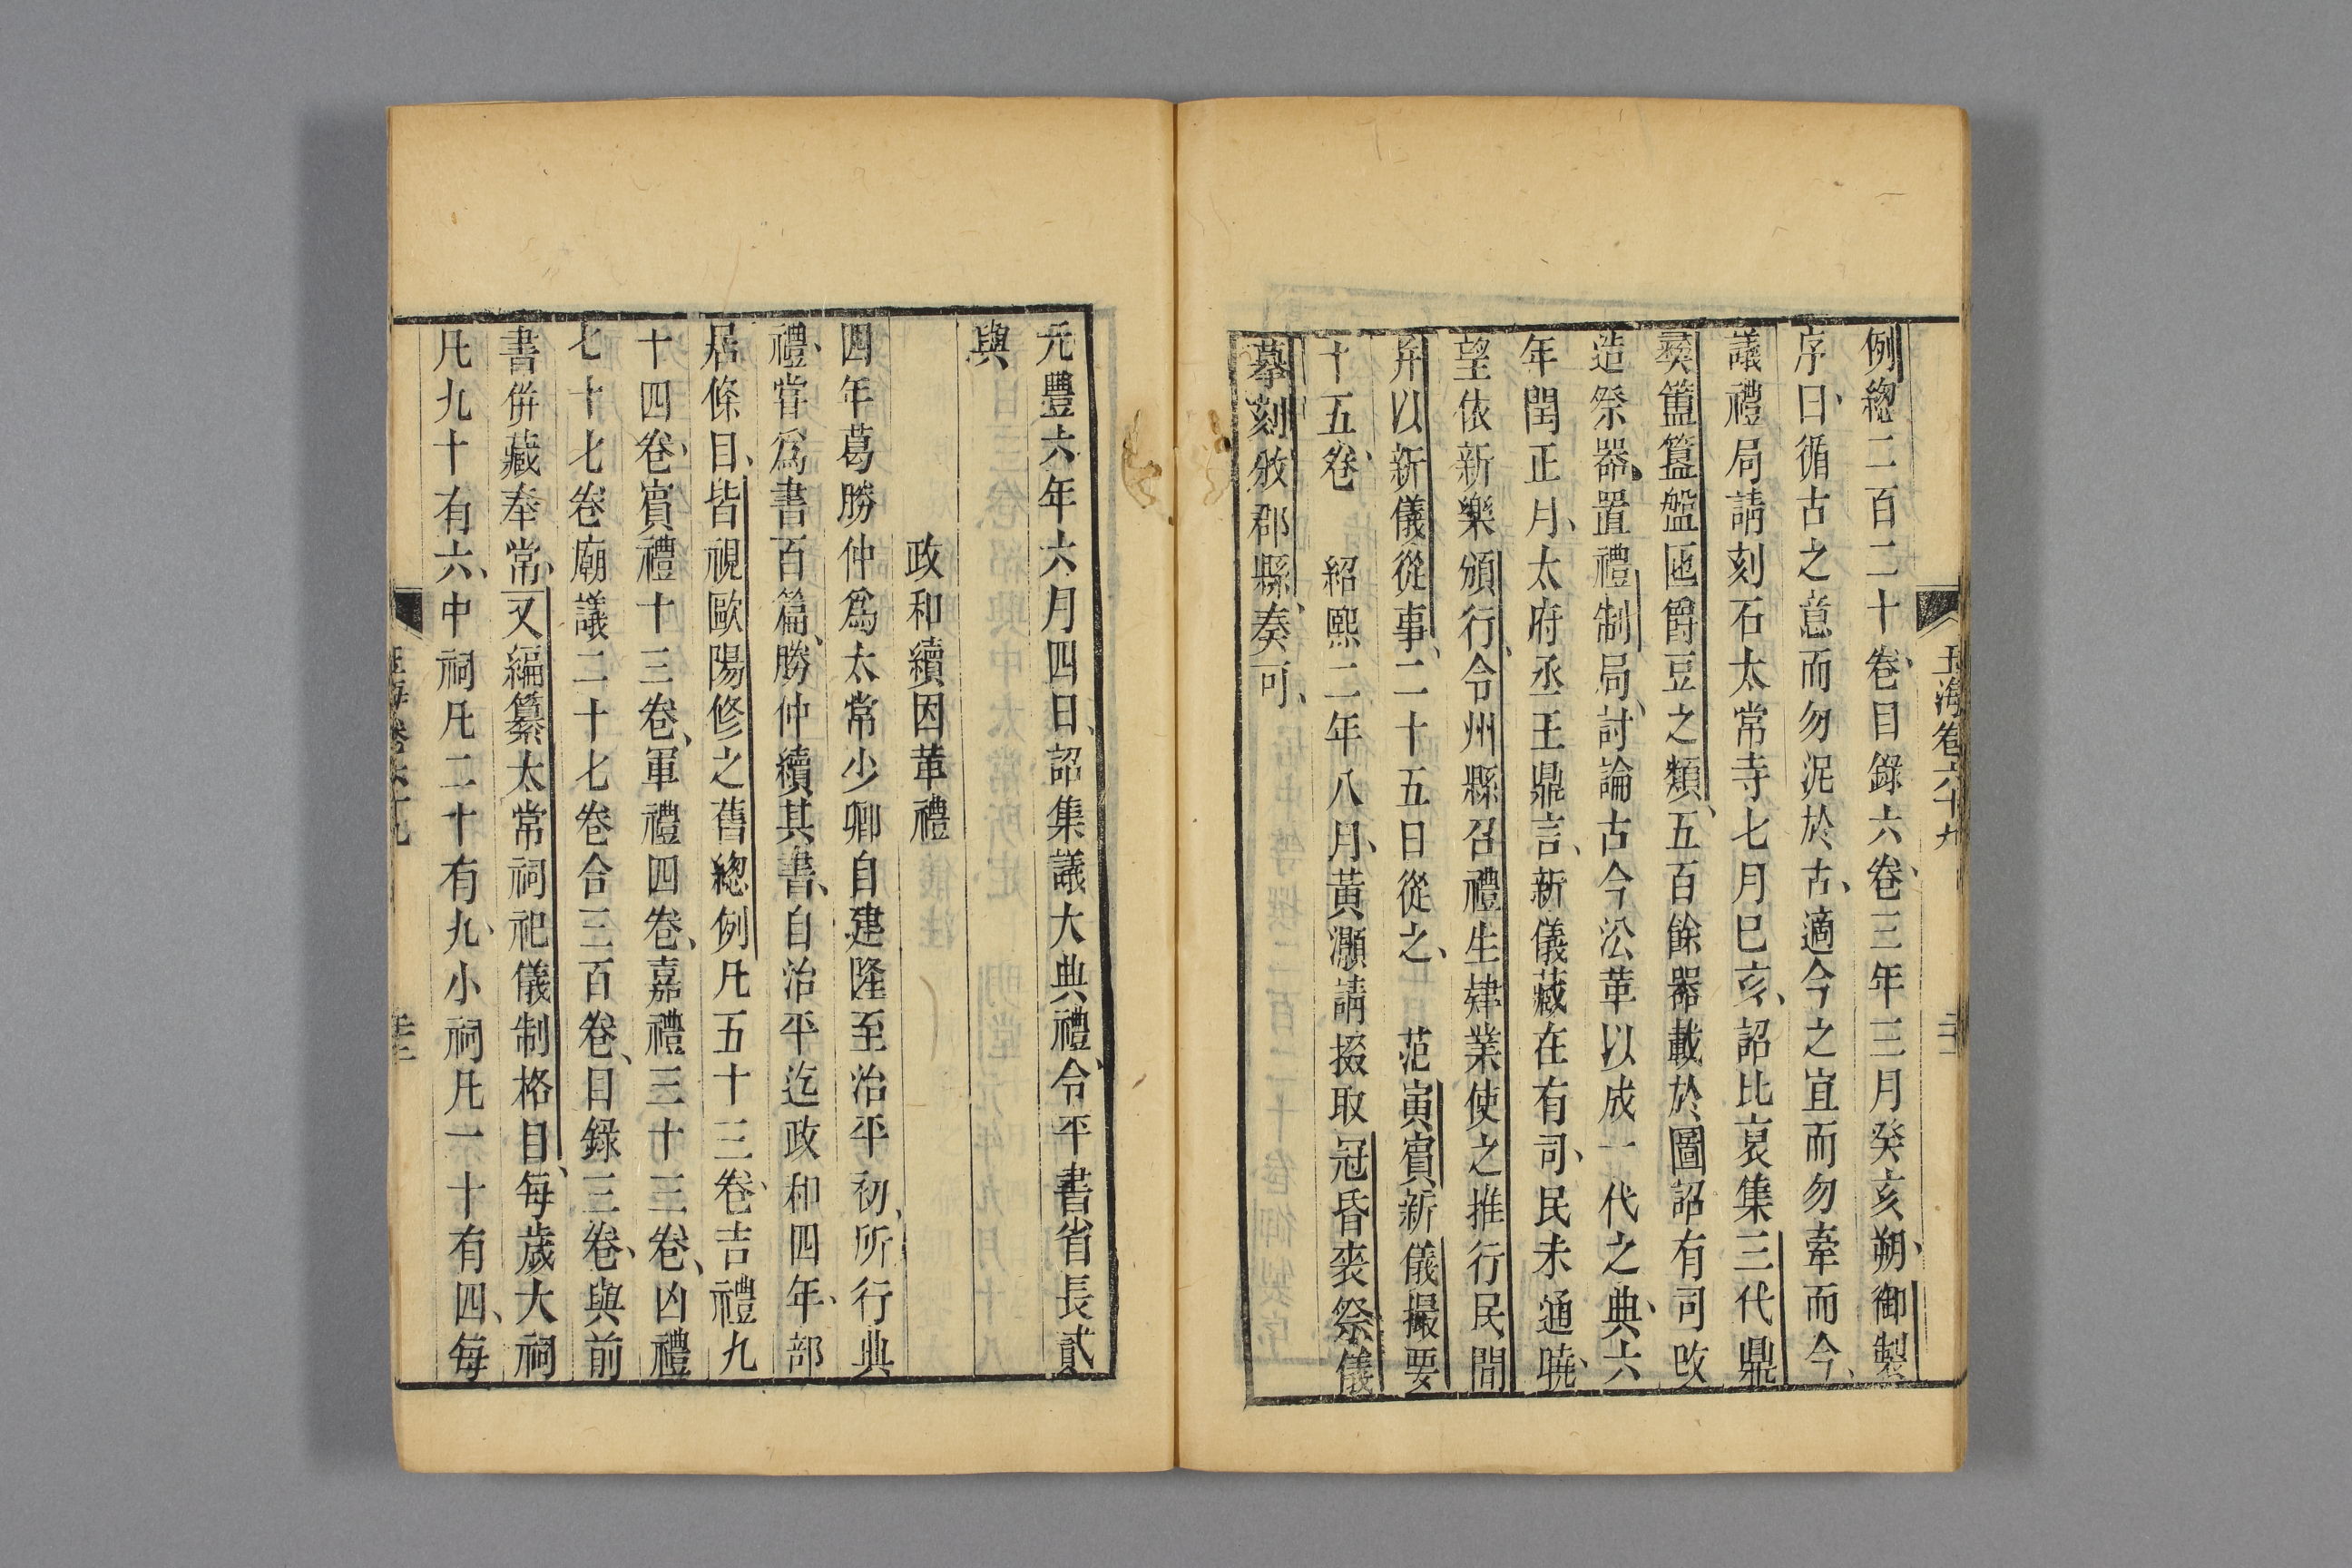 玉海卷六十九
例總二百二十卷目錄六卷三年三月癸亥朔御製
序曰循古之意而勿泥於古適今之宜而勿牽而今
議禮局請刻石太常寺七月巳亥詔比裒集三代鼎
彝簠簋盤匜爵豆之類五百餘器載於圖詔有司攺
造祭器置禮制局討論古今㳂革以成一代之典六
年閏正月太府丞王鼎言新儀藏在有司民未通曉
望依新樂頒行令州縣召禮生肄業使之推行民間
并以新儀從事二十五日從之　范寅賓新儀撮要
十五卷　紹熙二年八月黃灝請掇取冠昏喪祭儀
摹刻放郡縣奏可
元豐六年六月四日詔集議大典禮令平書省長貳
與
政和續因革禮
四年葛勝仲爲太常少卿自建隆至治平初所行典
禮嘗爲書百篇勝仲續其書自治平迄政和四年部
居條目皆視歐陽修之舊總例凡五十三卷吉禮九
十四卷賓禮十三卷軍禮四卷嘉禮三十三卷凶禮
七十七卷廟議二十七卷合三百卷目錄三卷與前
書併藏奉常又編纂太常祠祀儀制格目每歲大祠
凡九十有六中祠凡二十有九小祠凡一十有四每
玉海卷六十九